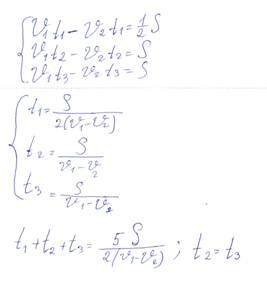 v₁t₁ - v₂t₁ = 1/2 S
v₁t₂ - v₂t₂ = S
v₁t₃ - v₂t₃ = S
t₁ = S/2(v₁-v₂)
t₂ = S/v₁-v₂
t₃ = S/v₁-v₂
t₁+t₂+t₃ = 5S/2(v₁-v₂) ; t₂ = t₃